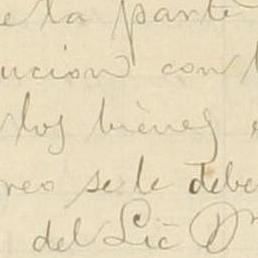 de la parte
ucion con l
los bienes
reo se le debe
del Lic D